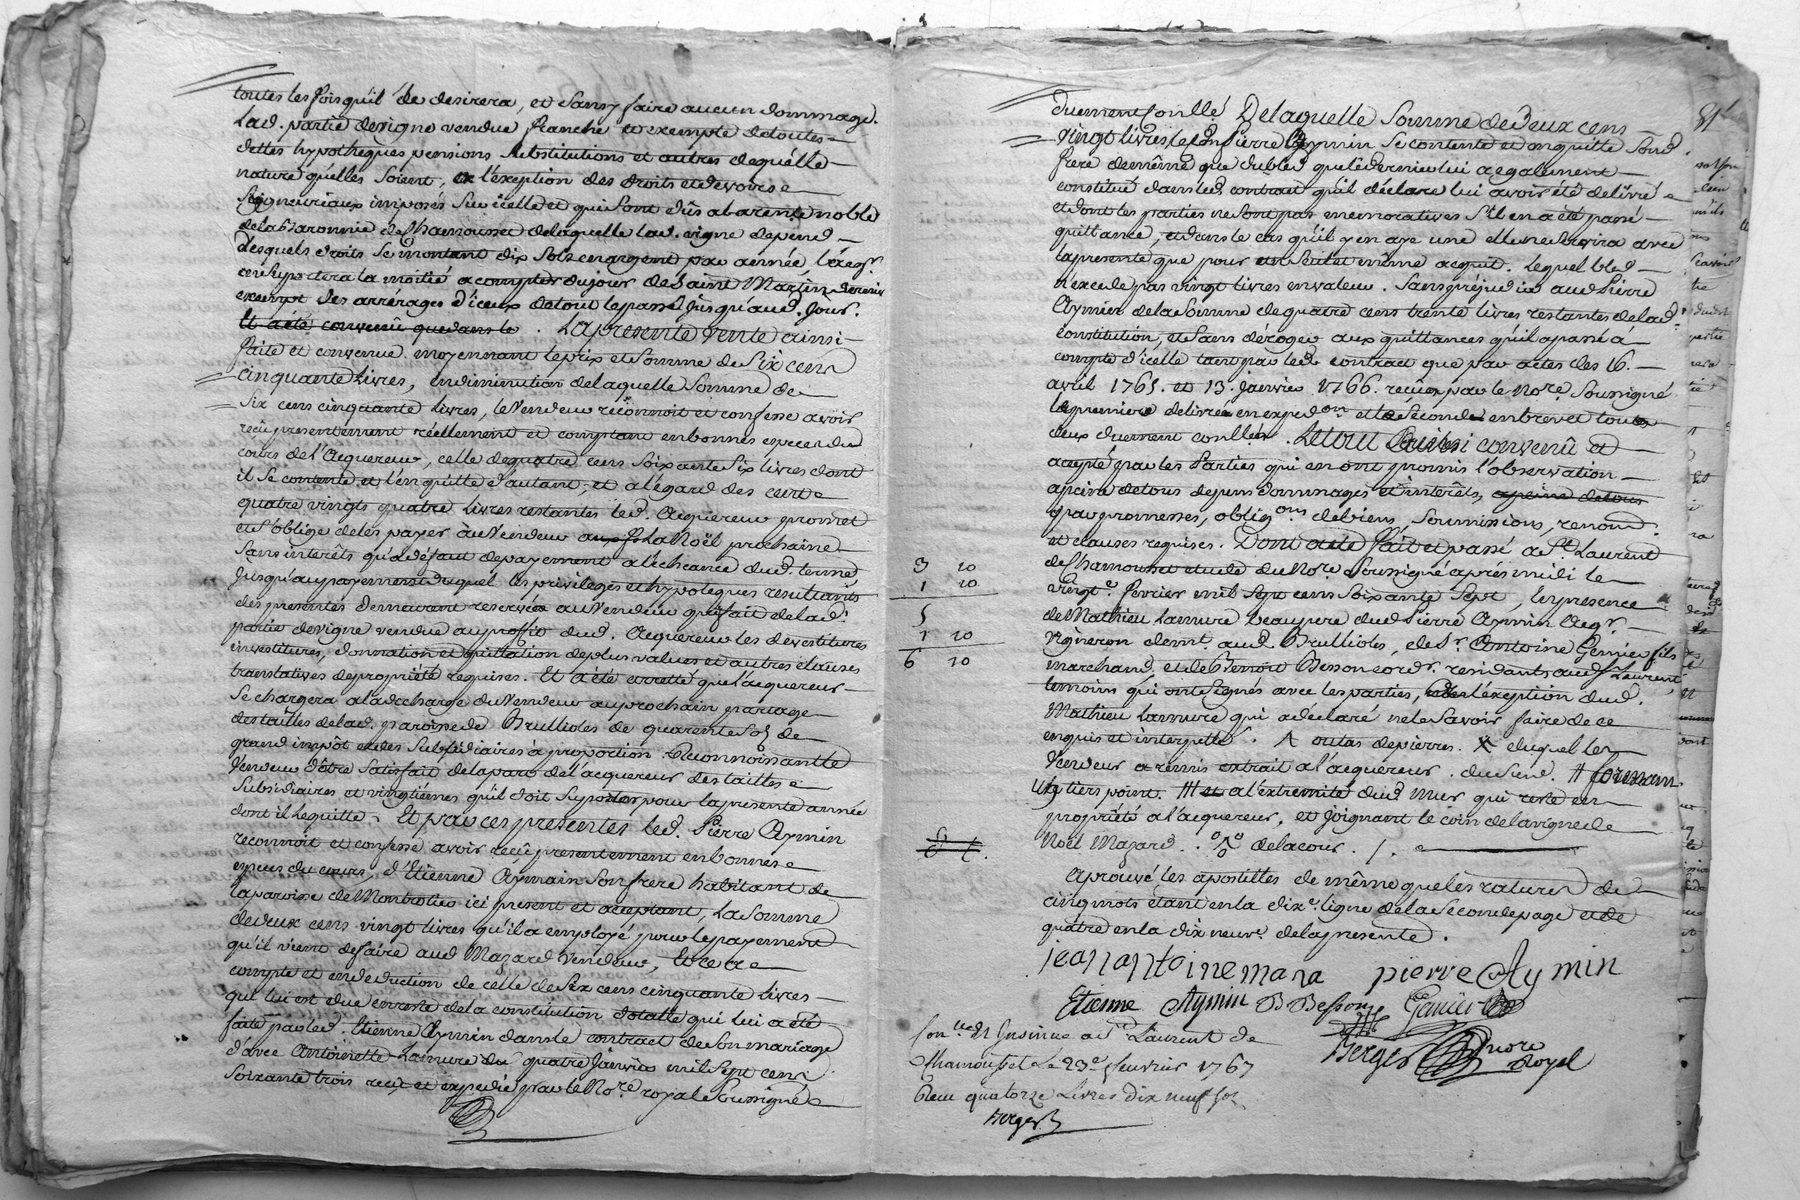 toutes les fois qu'il le desirera, et sans y faire aucun dommage.
Lad. partie de vigne vendue franche et exempte de toutes
dettes hypotheques pensions substitutions et autres de quélle
nature qu'élles soient, a l'exeption des droits et devoirs
seigneuriaux imposés sur icelle et qui sont dûs a la rente noble
de la Baronnie de Chamousset de laquelle lad. vigne depend
desquels droits se montant dix sols en argent par année l'acqr.
en suportera la moitié a compter du jour de Saint Martin dernier
exempt des arrérages d'iceux de tout le passé jusqu'aud. jour.
Et a été convenû que dans le. La presente vente ainsi
faite et convenue moyennant le prix et somme de six cens
cinquante Livres, en diminution de laquelle somme de
six cens cinquante livres, le vendeur reconnoit et confesse avoir
reçû presentement réellement et comptant en bonnes especes du
cours de l'acquereur, celle de quatre cens soixante six livres dont
il se contente et l'en quitte d'autant, et a l'égard des cent
quatre vingts quatre livres restantes led. acquereur promet
et s'oblige de les payer au vendeur a la Noël prochaine
sans interêts qu'a défaut de payement a l'echéance dud. terme
jusqu'au payement duquel les privileges et hypoteques resultants
des presentes demeurent reservés au vendeur qui fait de lad.
partie de vigne vendue au proffit dud. acquereur les devestitures
investitures, donnation et quittation de plus values et autres clauses
translatives de propriété requises. Et a été arretté que l'acquereur
se chargera a la decharge du vendeur au prochain partage
des tailles de lad. paroisse de Brullioles de quarente sols de
grand impôt et des subsidiaires à proportion. Reconnoissant le
vendeur d'être satisfait de la part de l'acquereur des tailles
subsidiaires et vingtiémes qu'il doit suporter pour la presente année
dont il le quitte. Et par ces presentes led. Pierre Aymin
reconnoit et confesse avoir reçû presentement en bonnes
especes du cours, d'Etienne Aymain son frere habitant de
la paroisse de Montrotier ici present et acceptant, la somme
de deux cens vingt livres qu'il a employé pour le payement
qu'il vient de faire aud. Mazard vendeur, et ce a
compte et en deduction de celle de six cens cinquante livres
qui lui est due en reste de la constitution dotalle qui lui a été
faite par led. Etienne Aymin dans le contract de son mariage
d'avec Antoinette Lamure du quatre Janvier mil sept cens
soixante trois reçu et expedié par le Nore. royal soussigné
duement conllé. De laquelle somme de deux cens
vingt livres led. Pierre Aymin se contente et en quitte sond.
frere de même que du bled que le dernier lui a egalement
constitué dans led. contract qu'il déclare lui avoir été delivré
et dont les parties ne sont pas memoratives s'il en a été passé
quittance, et dans le cas qu'il y en aye une elle ne servira avec
la presente que pour un seul et même acquit. lequel bled
n'excede pas vingt livres en valeur. Sans prejudice aud. Pierre
Aymin de la somme de quatre cens trente livres restantes de lad.
constitution, et sans déroger aux quittances qu'il a passé à
compte d'icelle tant par led. contract que par actes des 16.
avril 1765. et 13. janvier 1766. reçûs par le Nore. soussigné
le premier delivré en expedon. et le second en brevet tous
deux duement conllés. Le tout ainsi convenû et
accepté par les parties qui en ont promis l'observation
a peine de tous depens dommages et interêts, a peine de tous
par promesses, obligons. de biens, soumissions, renond.
et clauses requises. Dont acte fait et passé a St. Laurent
de Chamousset etude du Nore. soussigné après midi le
3 10
1 10
5
1 10
6 10
vingt. fevrier mil sept cens soixante sept, en presence
de Mathieu Lamure beaupere dud. Pierre Aymin
vigneron demt. aud. Brullioles, de sr. Antoine Genier fils
marchand et de Benoit Besson cordr. residants aud. St Laurent,
temoins qui ont signés avec les parties, a l'exeption dud.
Mathieu Lamure qui a declaré ne le savoir faire de ce
enquis et interpellé. A outas de pierres. X duquel led.
vendeur a remis extrait a l'acquereur. du send. #
tiers point. #| et a l'éxtremité dud. mur qui reste en
propriété a l'acquereur, et joignant le coin de la vigne de
Noël Mazard. de la cour.
Aprouvé les apostilles de même que les ratures de
cinq mots étant en la dixe. ligne de la seconde page et de
quatre en la dix neuve. de la presente.
jean antoine mazard pierre Aymin
Etienne Aymin B Besson Genier
Berger nore royal
Conllé et Insinué a St Laurent de
Chamousset le 23e fevrier 1767
Recu quatorze Livres dix neuf sols
Berger